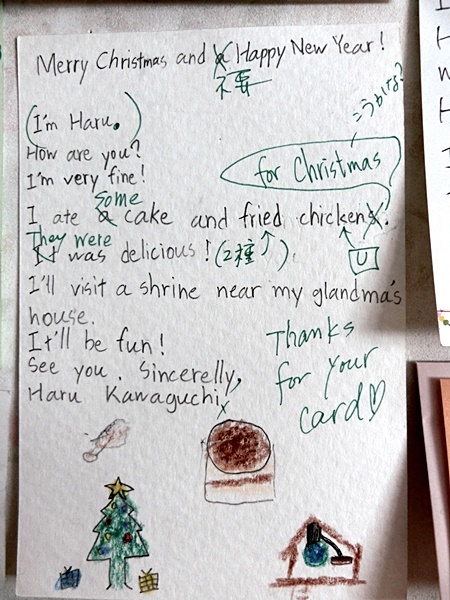 Merry Christmas and a Happy New Year!
不要
こうかな?
(I'm Haru.)
How are you?
I'm very fine!
for Christmas
some
I ate a cake and fried chickens.
They were
It was delicious! (2種↑) U
I'll visit a shrine near my glandma's
house.
It'll be fun!
See you. Sincerelly,
Haru Kawaguchi
Thanks
for your
card♡